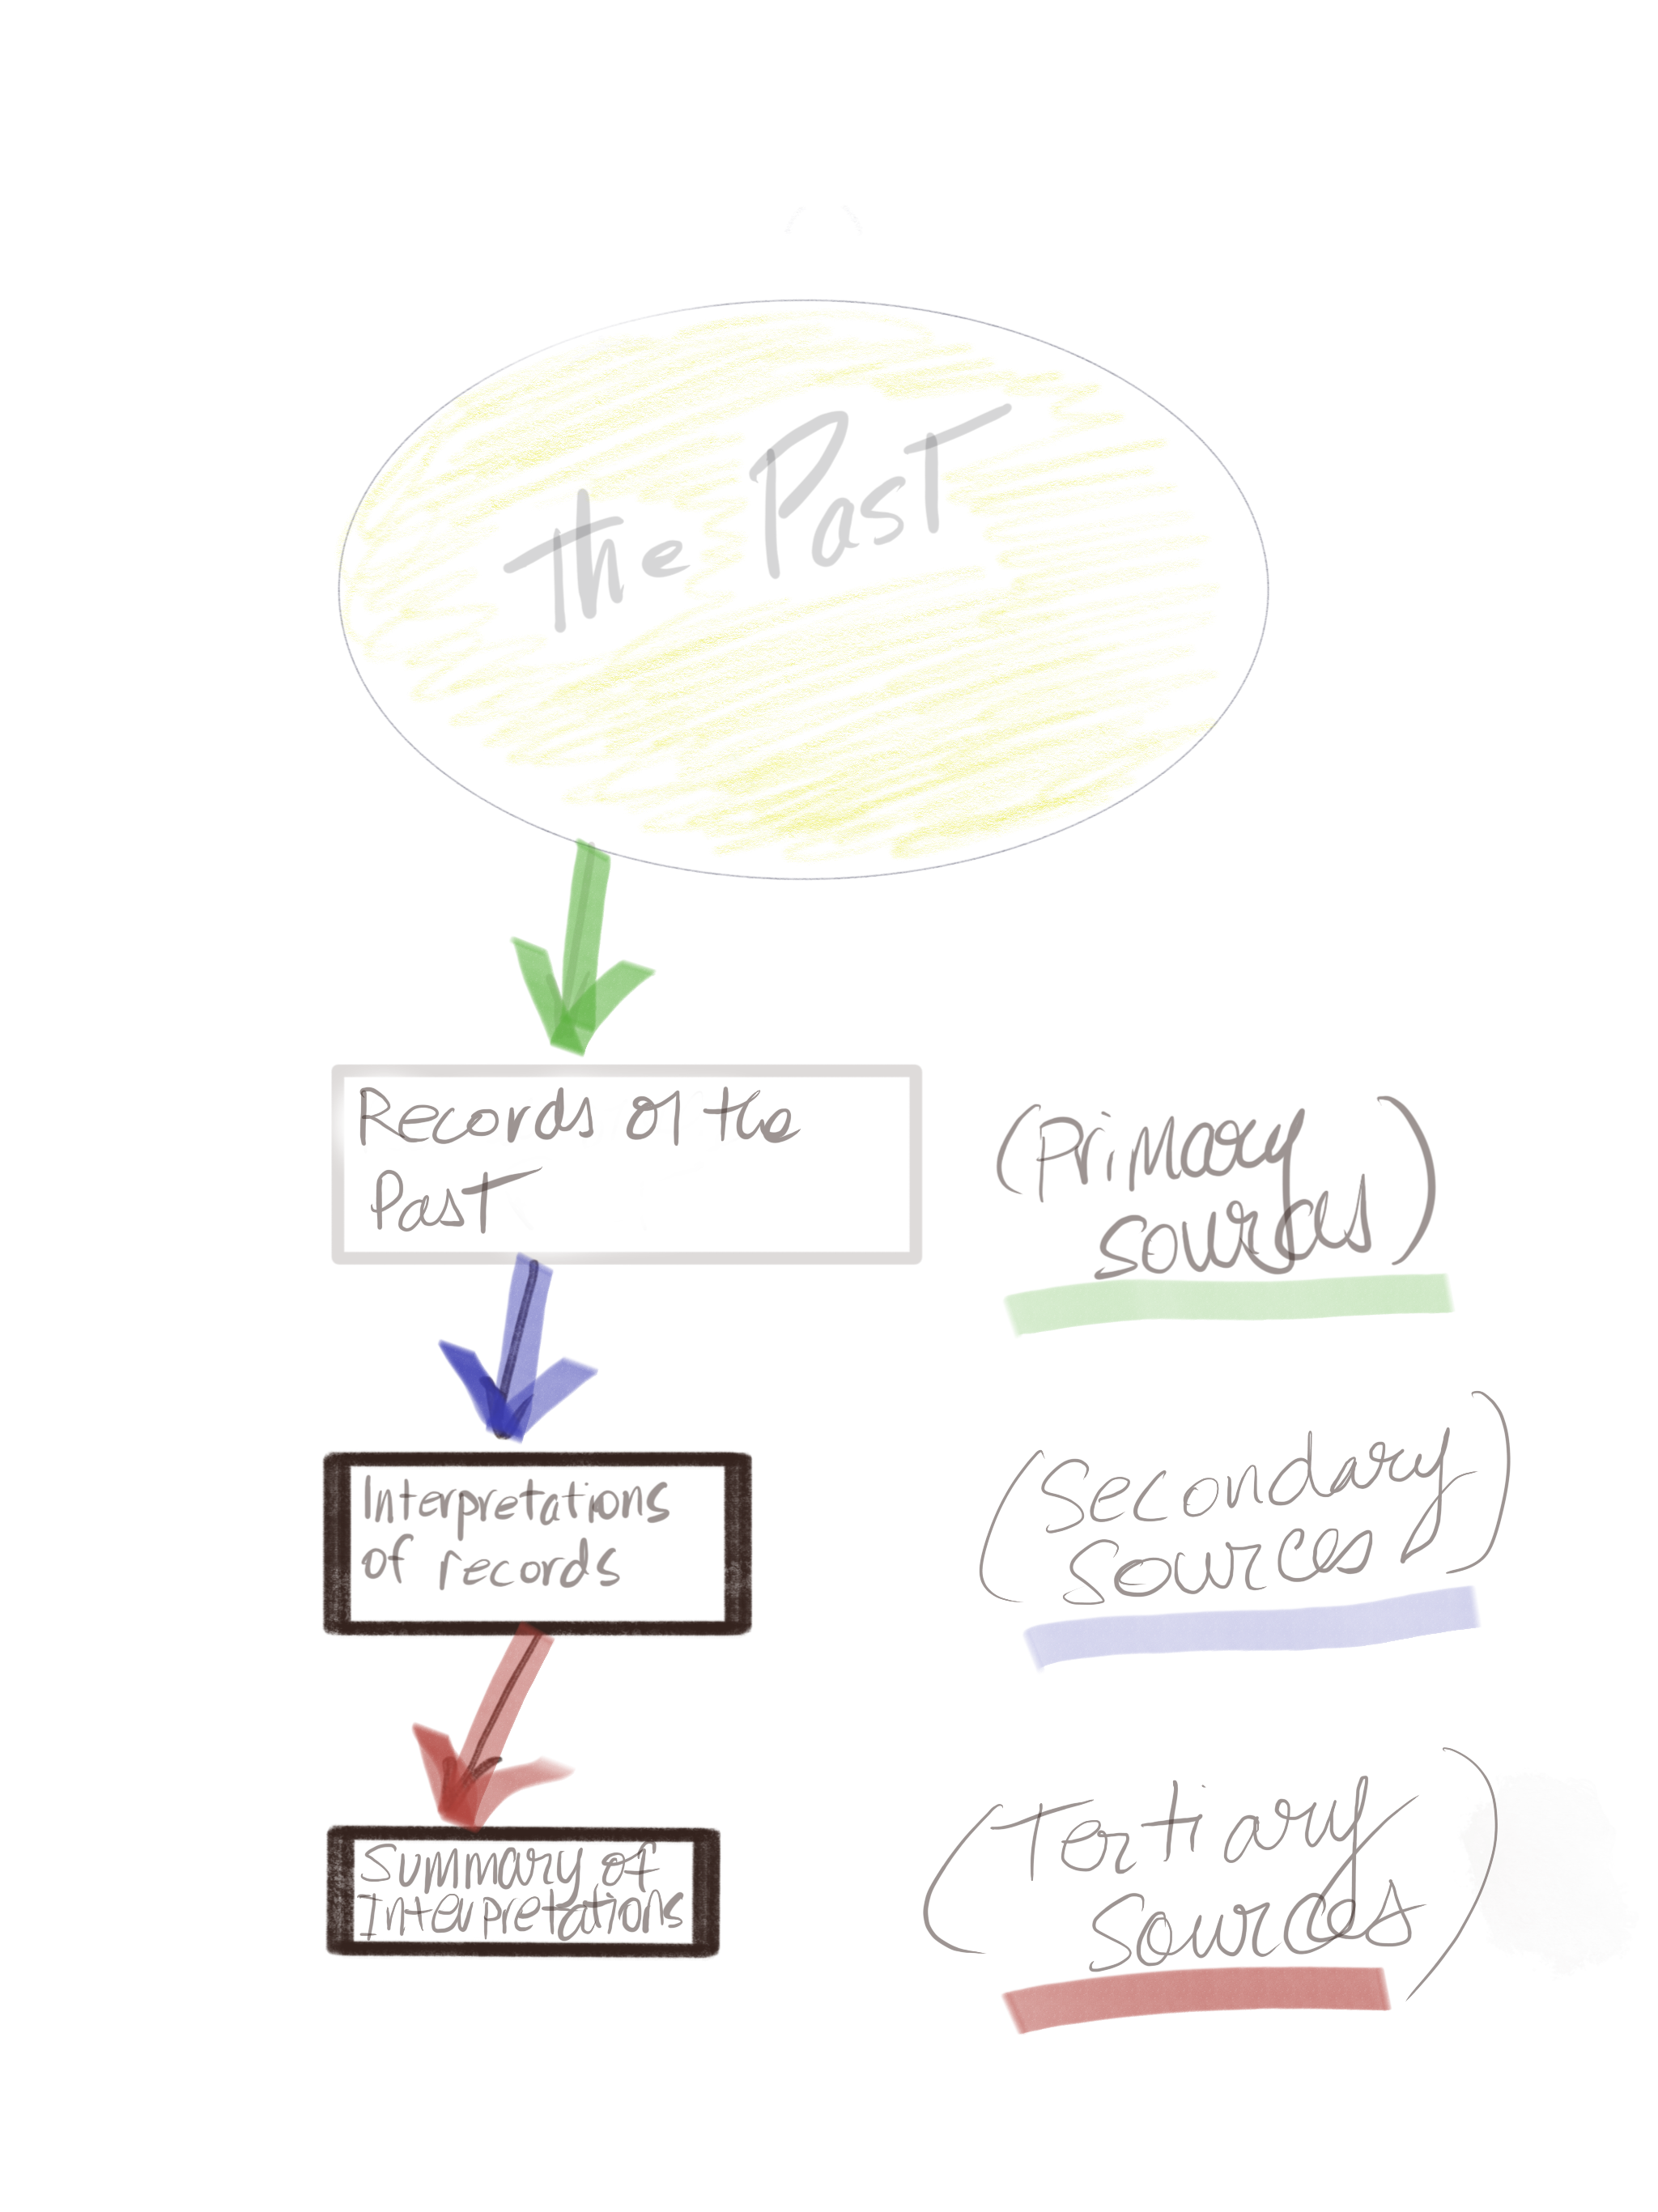 The Past
Records of the
Past
(Primary
sources)
Interpretations
of records
(Secondary
sources)
Summary of
Interpretations
(Tertiary
sources)